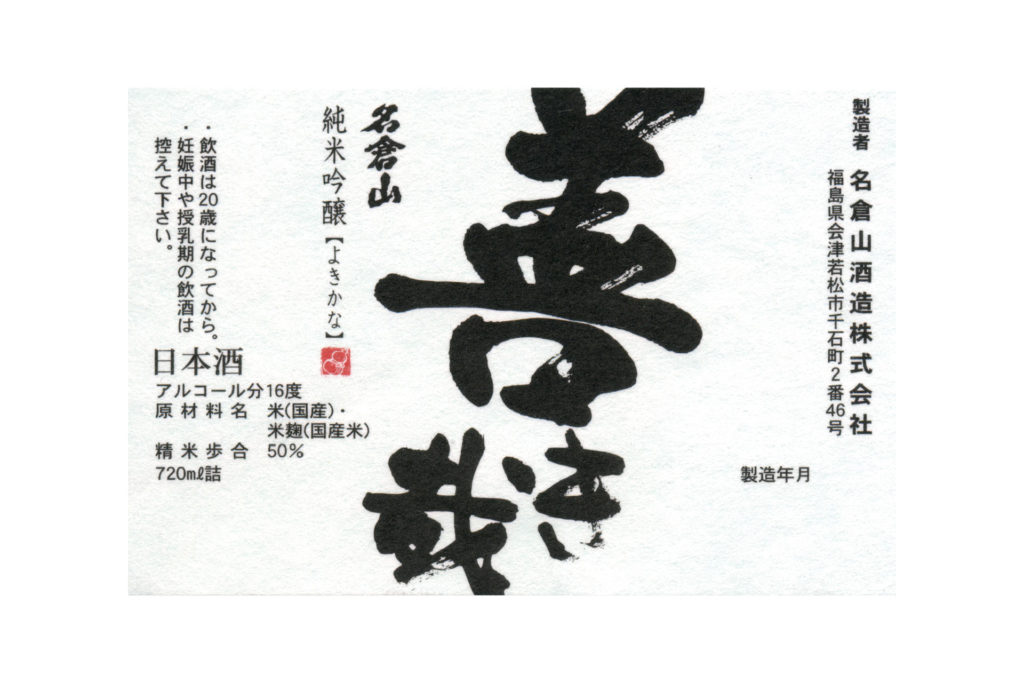 製造者 名倉山酒造株式会社
福島県会津若松市千石町2番46号
製造年月
善き
哉
名倉山
純米吟醸【よきかな】
・飲酒は20歳になってから。
・妊娠中や授乳期の飲酒は
控えて下さい。
日本酒
アルコール分16度
原材料名 米(国産)・
米麹(国産米)
精米歩合 50%
720mℓ詰